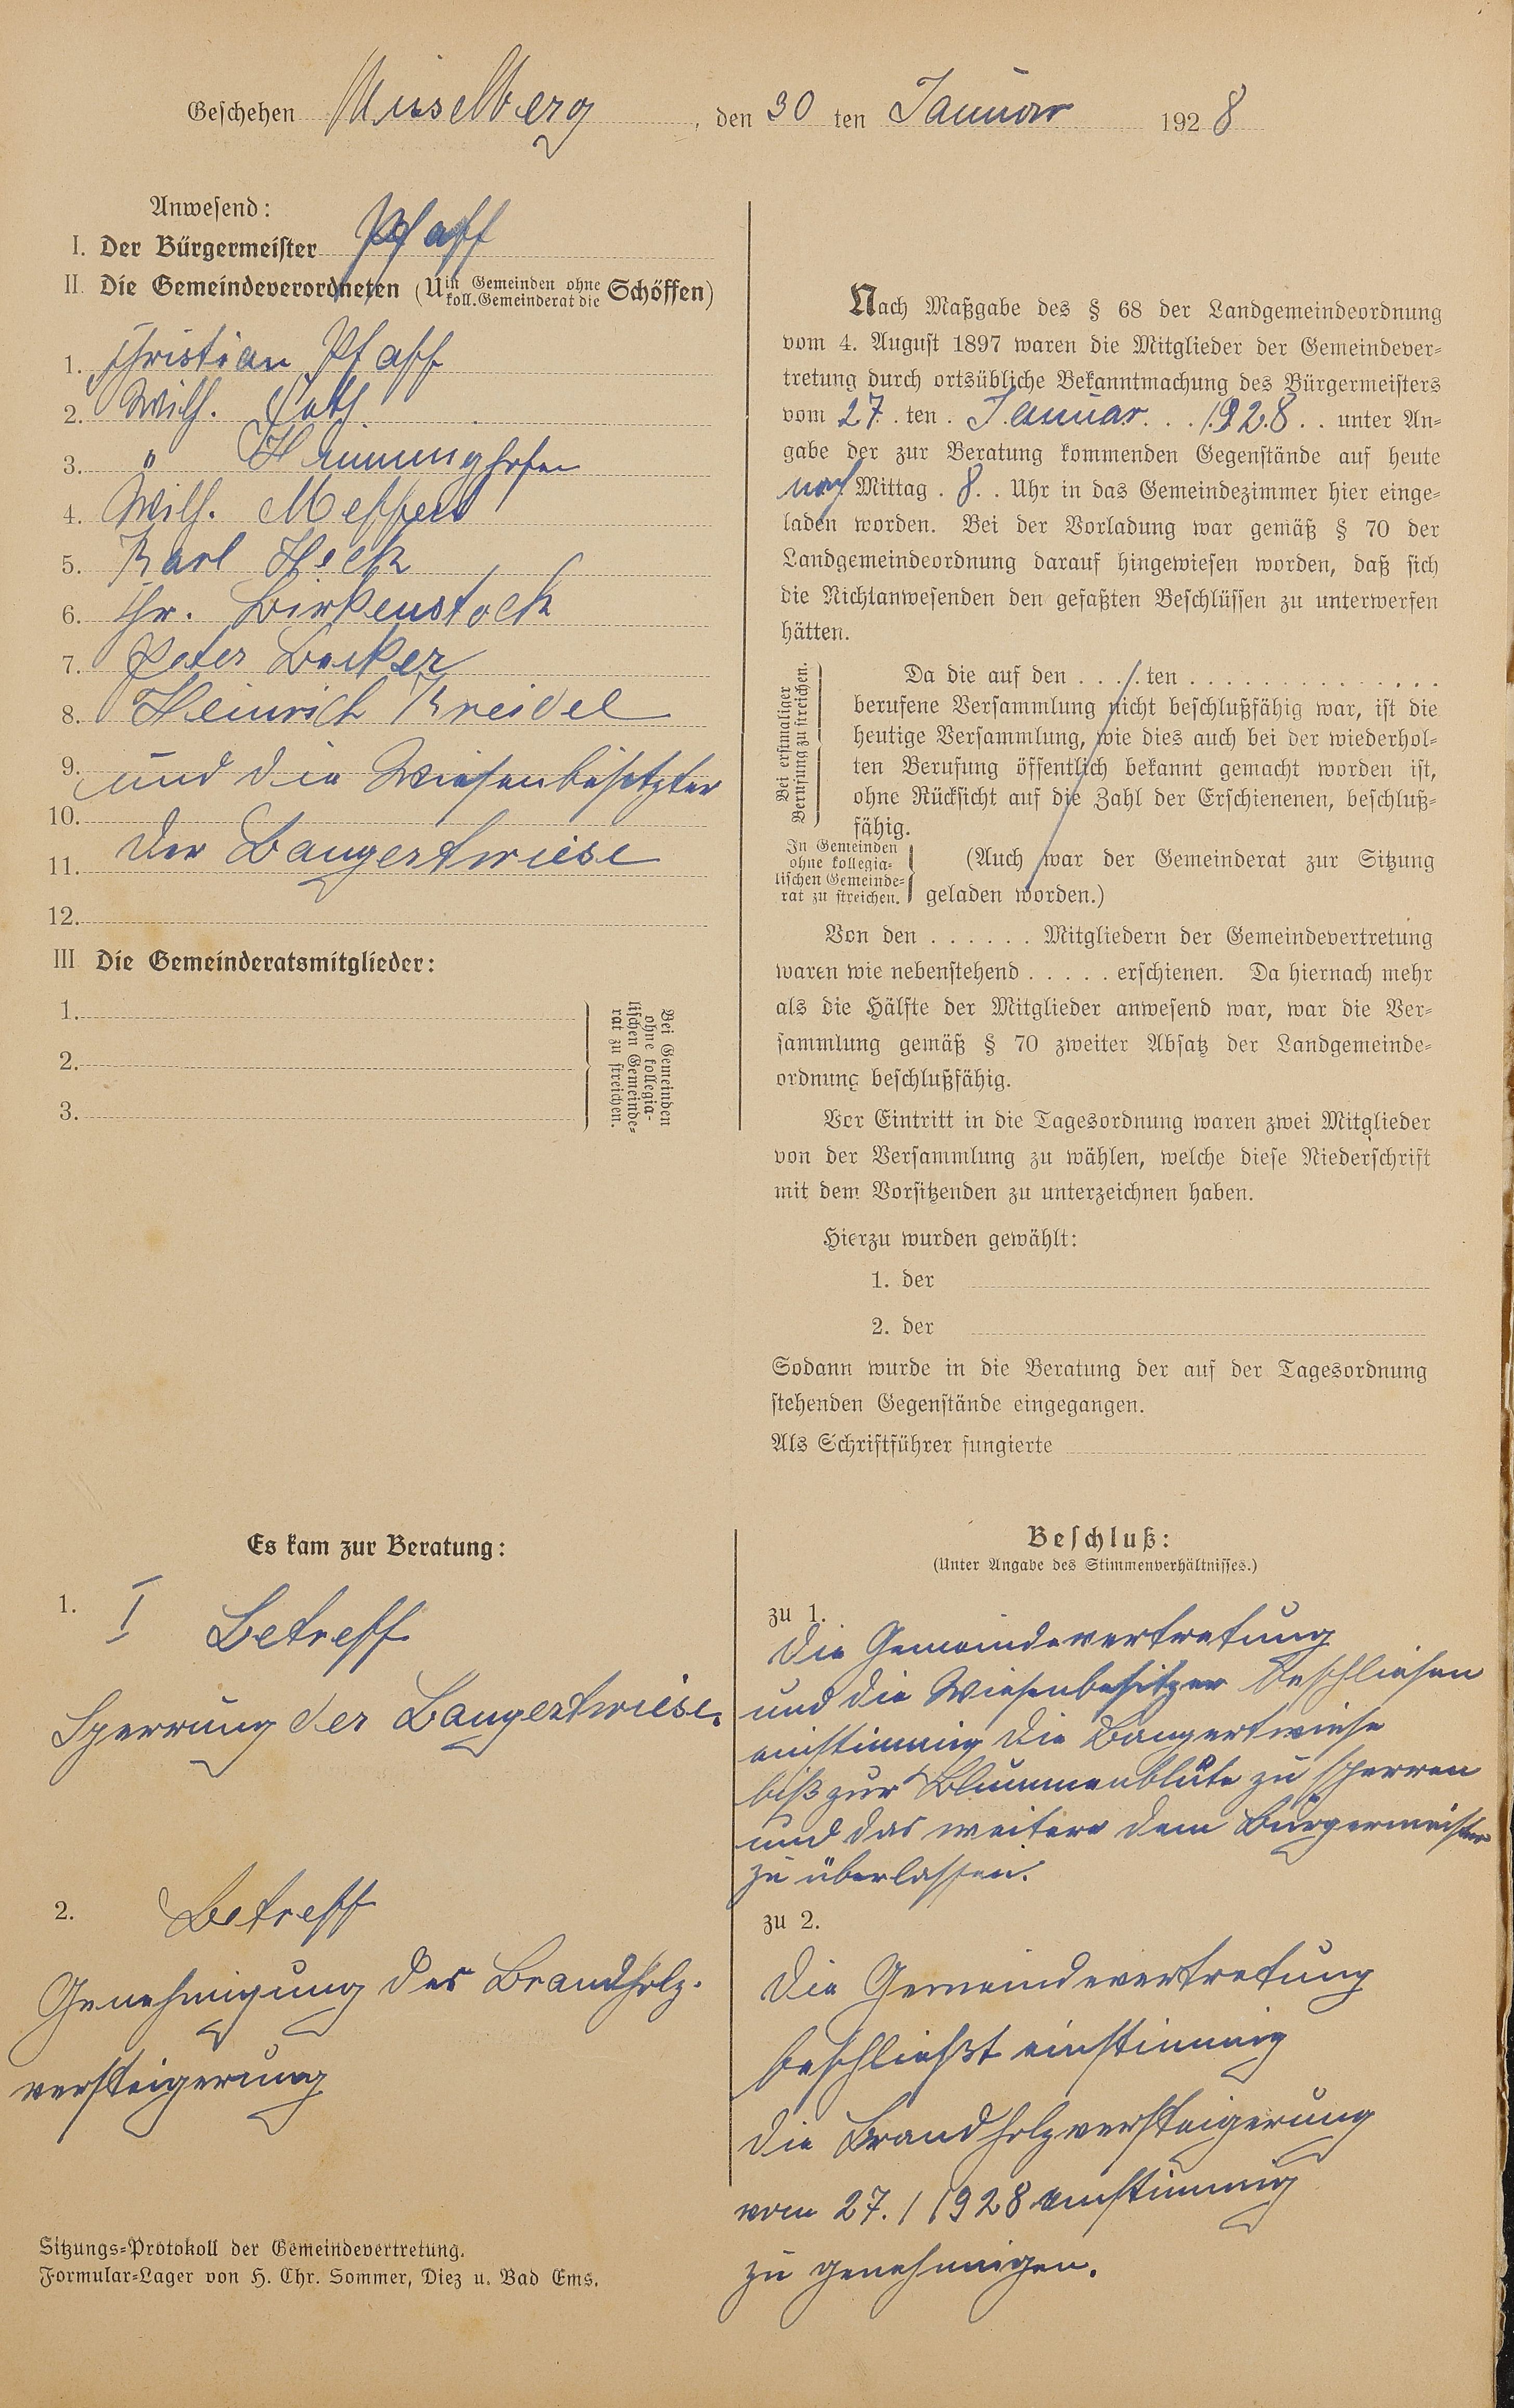 Geschehen Misselberg, den 30 ten Januar 1928
Anwesend:
I. Der Bürgermeister Pfaff
II. Die Gemeindeverordneten (U in Gemeinden ohne koll. Gemeinderat die Schöffen)
1. Christian Pfaff
2. Wilh.
3. "
4. Wilh. Meffert
5. Karl Heck
6. Chr. Birkenstock
7. Peter Becker
8. Heinrich Kreidel
9. und die Wiesenbesitzter
10.
11. der Bangertwiese
12.
III Die Gemeinderatsmitglieder:
1.
2.
3.
Bei Gemeinden
ohne kollegia-
lischen Gemeinde-
rat zu streichen.
Nach Maßgabe des § 68 der Landgemeindeordnung
vom 4. August 1897 waren die Mitglieder der Gemeindever-
tretung durch ortsübliche Bekanntmachung des Bürgermeisters
vom 27. ten. Januar. . . 1928 . . unter An-
gabe der zur Beratung kommenden Gegenstände auf heute
nach Mittag . 8 . . Uhr in das Gemeindezimmer hier einge-
laden worden. Bei der Vorladung war gemäß § 70 der
Landgemeindeordnung darauf hingewiesen worden, daß sich
die Nichtanwesenden den gefaßten Beschlüssen zu unterwerfen
hätten.
Bei erstmaliger
Berufung zu streichen.
Da die auf den . . . . ten . . . . . . . . . . . . . .
berufene Versammlung nicht beschlußfähig war, ist die
heutige Versammlung, wie dies auch bei der wiederhol-
ten Berufung öffentlich bekannt gemacht worden ist,
ohne Rücksicht auf die Zahl der Erschienenen, beschluß-
fähig.
In Gemeinden
ohne kollegia-
lischen Gemeinde-
rat zu streichen.
(Auch war der Gemeinderat zur Sitzung
geladen worden.)
Von den . . . . . . Mitgliedern der Gemeindevertretung
waren wie nebenstehend . . . . . erschienen. Da hiernach mehr
als die Hälfte der Mitglieder anwesend war, war die Ver-
sammlung gemäß § 70 zweiter Absatz der Landgemeinde-
ordnung beschlußfähig.
Vor Eintritt in die Tagesordnung waren zwei Mitglieder
von der Versammlung zu wählen, welche diese Niederschrift
mit dem Vorsitzenden zu unterzeichnen haben.
Hierzu wurden gewählt:
1. der
2. der
Sodann wurde in die Beratung der auf der Tagesordnung
stehenden Gegenstände eingegangen.
Als Schriftführer fungierte
Es kam zur Beratung:
1. I Betreff
Sperrung der Bangertwiese.
2. Betreff
Genehmigung der Brandholz-
versteigerung
Beschluß:
(Unter Angabe des Stimmenverhältnisses.)
zu 1.
Die Gemeindevertretung
und die Wiesenbesitzer beschliesen
einstimmig die Bangertwiese
biß zur Blummenblüte zu sperren
und das weitere dem Bürgermeister
zu überlassen.
zu 2.
Die Gemeindevertretung
beschließt einstimmig
die Brandholzversteigerung
vom 27.1 1928 einstimmig
zu genehmigen.
Sitzungs-Protokoll der Gemeindevertretung.
Formular-Lager von H. Chr. Sommer, Diez u. Bad Ems.